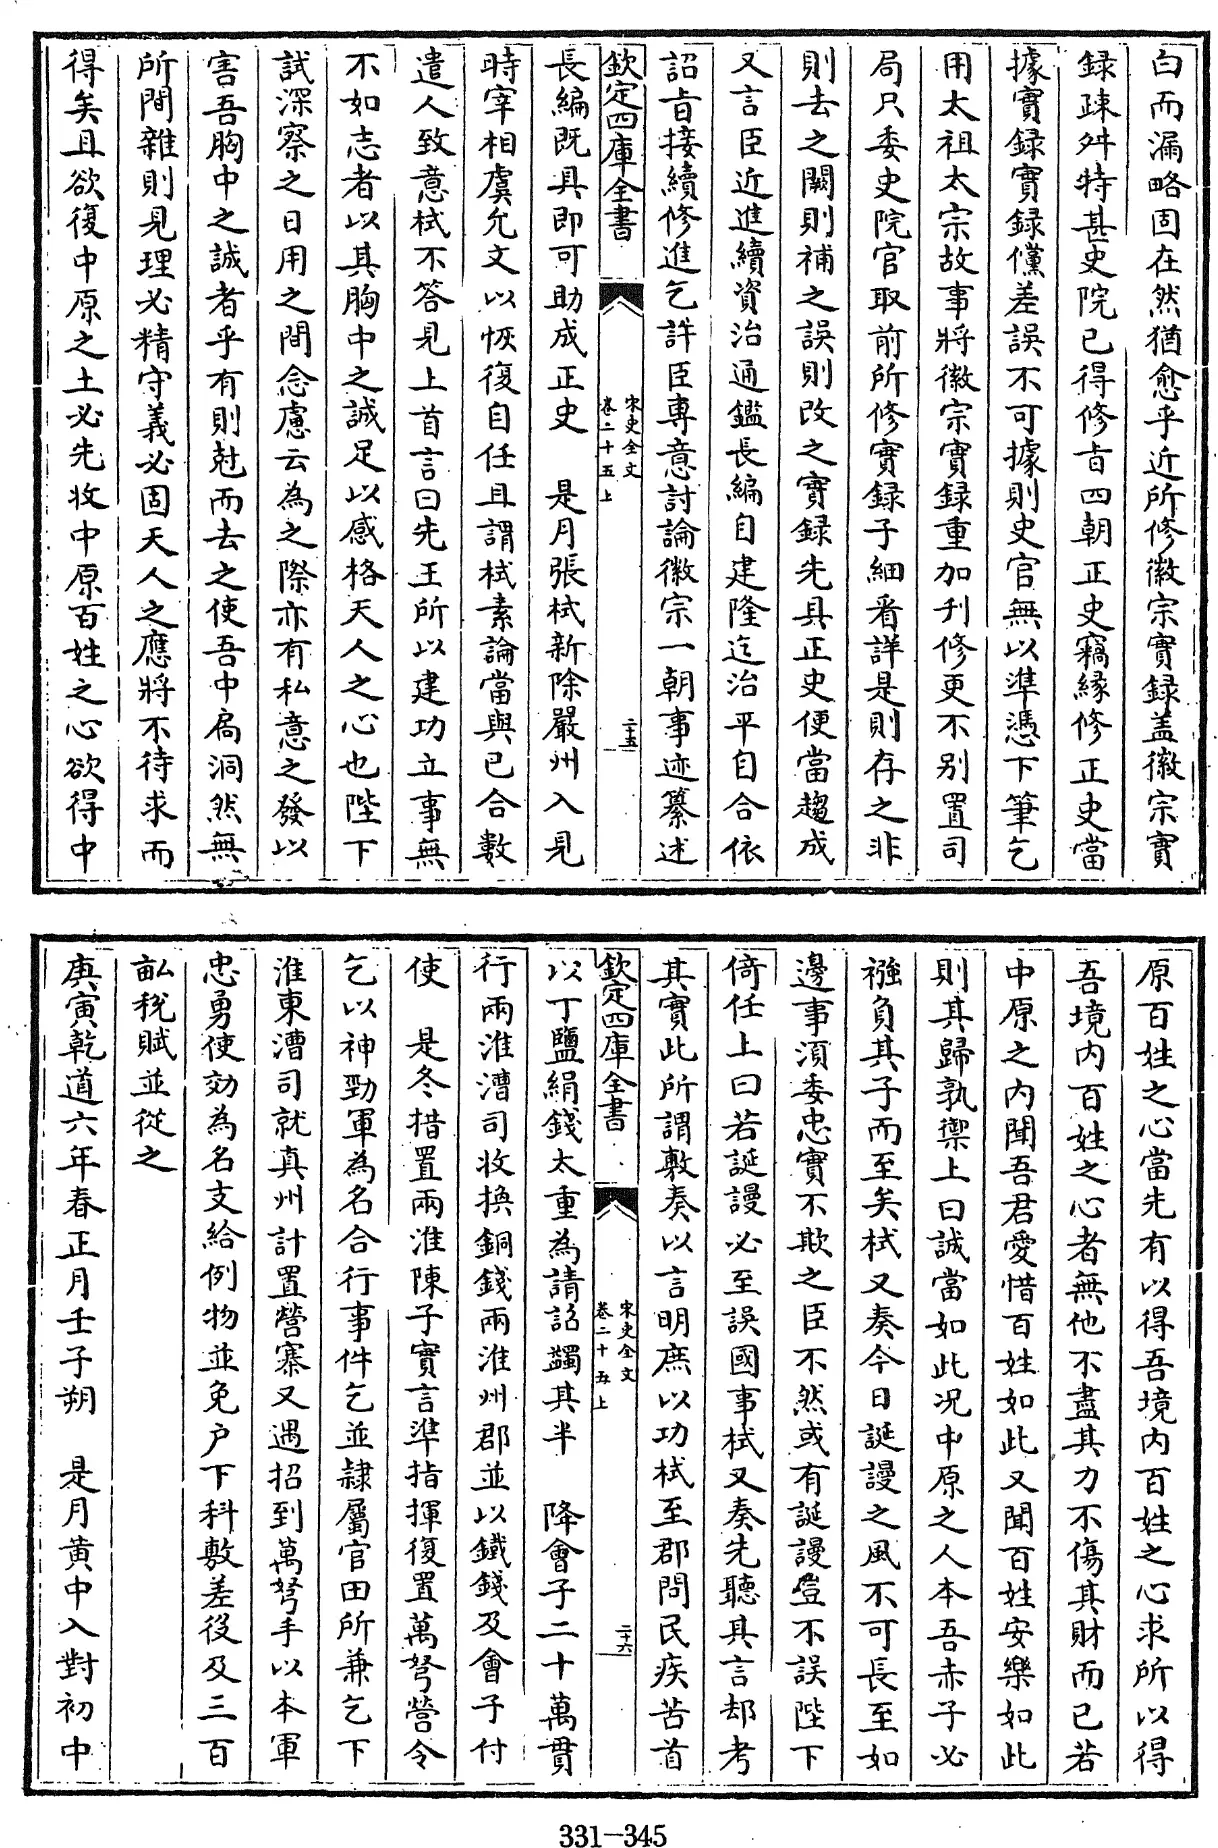 白而漏略固在然猶愈乎近所修徽宗實録盖徽宗實
録疎舛特甚史院已得修㫖四朝正史竊緣修正史當
據實録實録儻差誤不可據則史官無以準憑下筆乞
用太祖太宗故事將徽宗實録重加刋修更不别置司
局只委史院官取前所修實録子細看詳是則存之非
則去之闕則補之誤則改之實録先具正史便當趨成
又言臣近進續資治通鑑長編自建隆迄治平自合依
詔㫖接續修進乞許臣專意討論徽宗一朝事迹纂述
欽定四庫全書
宋史全文
卷二十五上
二十五
長編既具即可助成正史　是月張栻新除嚴州入見
時宰相虞允文以恢復自任且謂栻素論當與已合數
遣人致意栻不答見上首言曰先王所以建功立事無
不如志者以其胸中之誠足以感格天人之心也陛下
試深察之日用之間念慮云為之際亦有私意之發以
害吾胸中之誠者乎有則尅而去之使吾中扃洞然無
所間雜則見理必精守義必固天人之應將不待求而
得矣且欲復中原之土必先收中原百姓之心欲得中
原百姓之心當先有以得吾境内百姓之心求所以得
吾境内百姓之心者無他不盡其力不傷其財而已若
中原之内聞吾君愛惜百姓如此又聞百姓安樂如此
則其歸孰禦上曰誠當如此况中原之人本吾赤子必
襁負其子而至矣栻又奏今日誕謾之風不可長至如
邊事須委忠實不欺之臣不然或有誕謾豈不誤陛下
倚任上曰若誕謾必至誤國事栻又奏先聽其言却考
其實此所謂敷奏以言明庶以功栻至郡問民疾苦首
欽定四庫全書
宋史全文
卷二十五上
二十六
以丁鹽絹錢太重為請詔蠲其半　降會子二十萬貫
行兩淮漕司收換銅錢兩淮州郡並以鐵錢及會子付
使　是冬措置兩淮陳子實言準指揮復置萬弩營令
乞以神勁軍為名合行事件乞並隷屬官田所兼乞下
淮東漕司就真州計置營寨又遇招到萬弩手以本軍
忠勇使効為名支給例物並免户下科敷差役及三百
畝税賦並從之
庚寅乾道六年春正月壬子朔　是月黄中入對初中
331-345